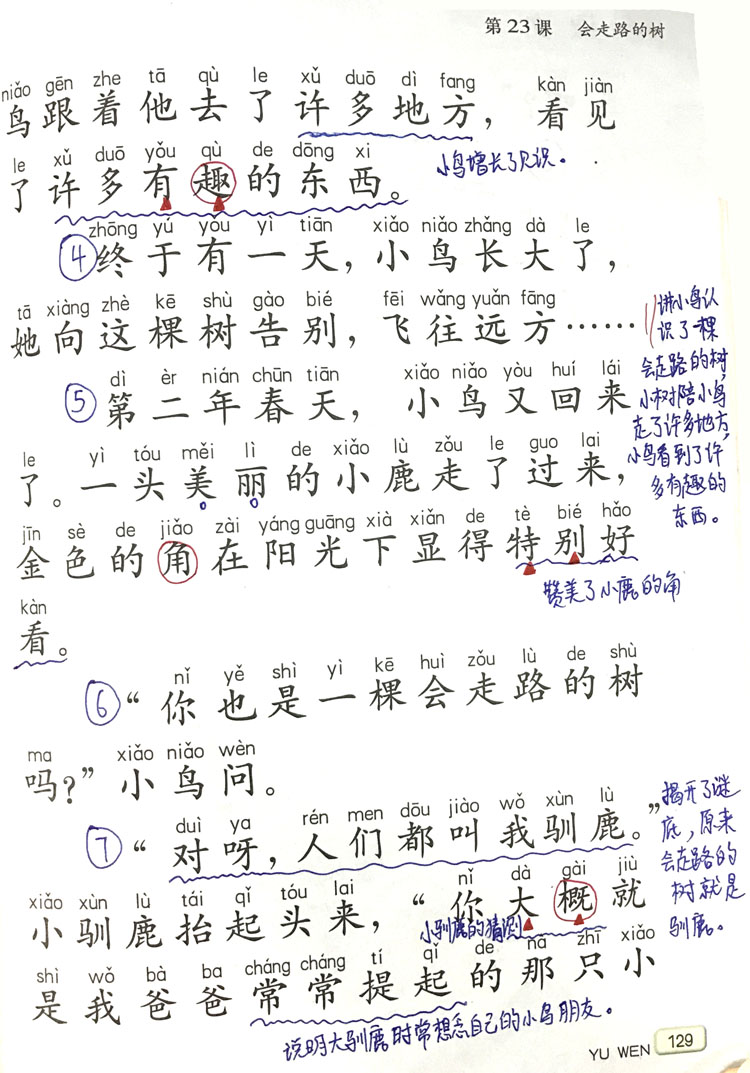 第23课 会走路的树
niǎo gēn zhe tā qù le xǔ duō dì fang kàn jiàn
鸟跟着他去了许多地方，看见
le xǔ duō yǒu qù de dōng xi
了许多有趣的东西。
小鸟增长了见识。
zhōng yú yǒu yì tiān xiǎo niǎo zhǎng dà le
④终于有一天，小鸟长大了，
tā xiàng zhè kē shù gào bié fēi wǎng yuǎn fāng
她向这棵树告别，飞往远方……
讲小鸟认
识了一棵
会走路的树，
小树陪小鸟
走了许多地方，
小鸟看到了许
多有趣的
东西。
dì èr nián chūn tiān xiǎo niǎo yòu huí lái
⑤第二年春天，小鸟又回来
le yì tóu měi lì de xiǎo lù zǒu le guo lai
了。一头美丽的小鹿走了过来，
jīn sè de jiǎo zài yáng guāng xià xiǎn de tè bié hǎo
金色的角在阳光下显得特别好
赞美了小鹿的角
kàn
看。
nǐ yě shì yì kē huì zǒu lù de shù
⑥“你也是一棵会走路的树
ma xiǎo niǎo wèn
吗？”小鸟问。
duì ya rén men dōu jiào wǒ xùn lù
⑦“对呀，人们都叫我驯鹿。”
揭开了谜
底，原来
会走路的
树就是
驯鹿。
xiǎo xùn lù tái qǐ tóu lai nǐ dà gài jiù
小驯鹿抬起头来，“你大概就
小驯鹿的猜测
shì wǒ bà ba cháng cháng tí qǐ de nà zhī xiǎo
是我爸爸常常提起的那只小
说明大驯鹿时常想念自己的小鸟朋友。
YU WEN 129